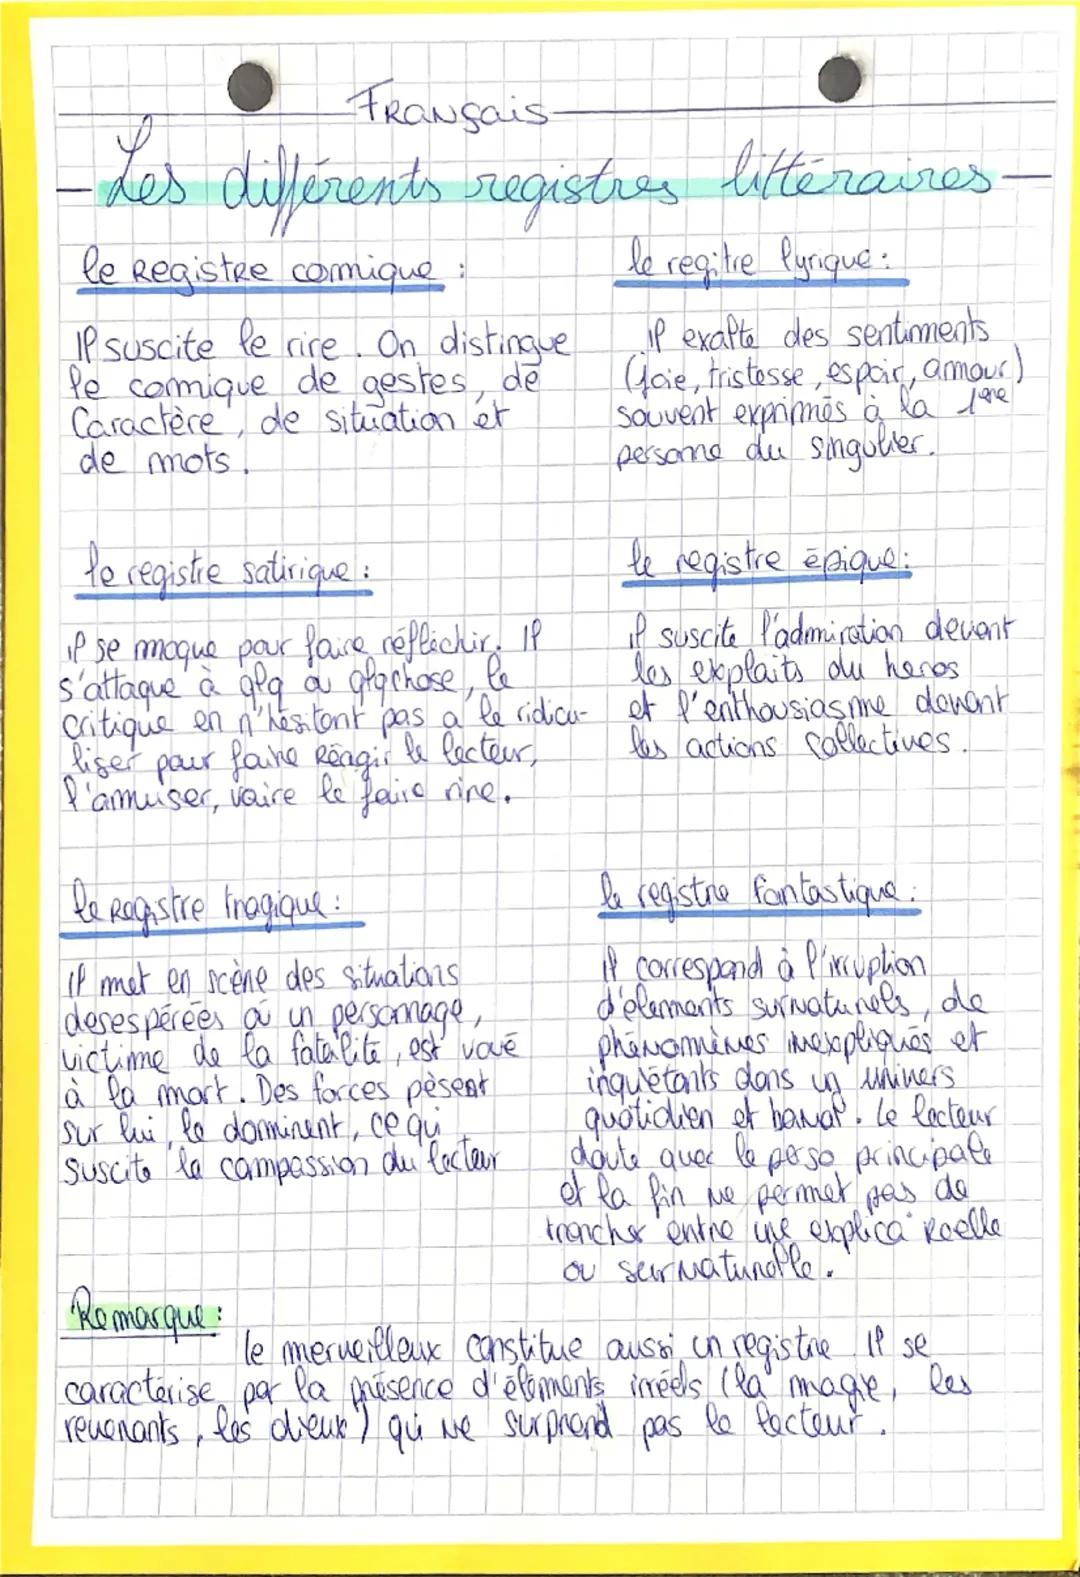 Français
Les différents registres littéraires
le Registre comique :
Il suscite le rire. On distingue
le comique de gestes, de
Caractère, de situation et
de mots.
le regitre lyrique :
il exalte des sentiments
(joie, tristesse, espoir, amour)
souvent exprimés à la 1ère
personne du singulier.
le registre satirique :
il se moque pour faire réfléchir. Il
s'attaque à qlq ou qlqchose, le
critique en n'hésitant pas a le ridicu-
liser pour faire Réagir le lecteur,
l'amuser, voire le faire rire.
le registre épique :
il suscite l'admiration devant
les exploits du heros
et l'enthousiasme devant
les actions collectives.
le Registre tragique :
Il met en scène des situations
desespérées où un personnage,
victime de la fatalité, est voué
à la mort. Des forces pèsent
sur lui, le dominent, ce qui
suscite la compassion du lecteur
le registre fantastique :
Il correspond à l'irruption
d'élements surnaturels, de
phénomènes inexpliqués et
inquiétants dans un univers
quotidien et banal. Le lecteur
doute avec le perso principale
et la fin ne permet pas de
trancher entre une explica° Réelle
ou surnaturelle.
Remarque :
le merveilleux constitue aussi un registre. Il se
caractérise par la présence d'éléments irréels (la magie, les
revenants, les dieux) qui ne surprend pas le lecteur.